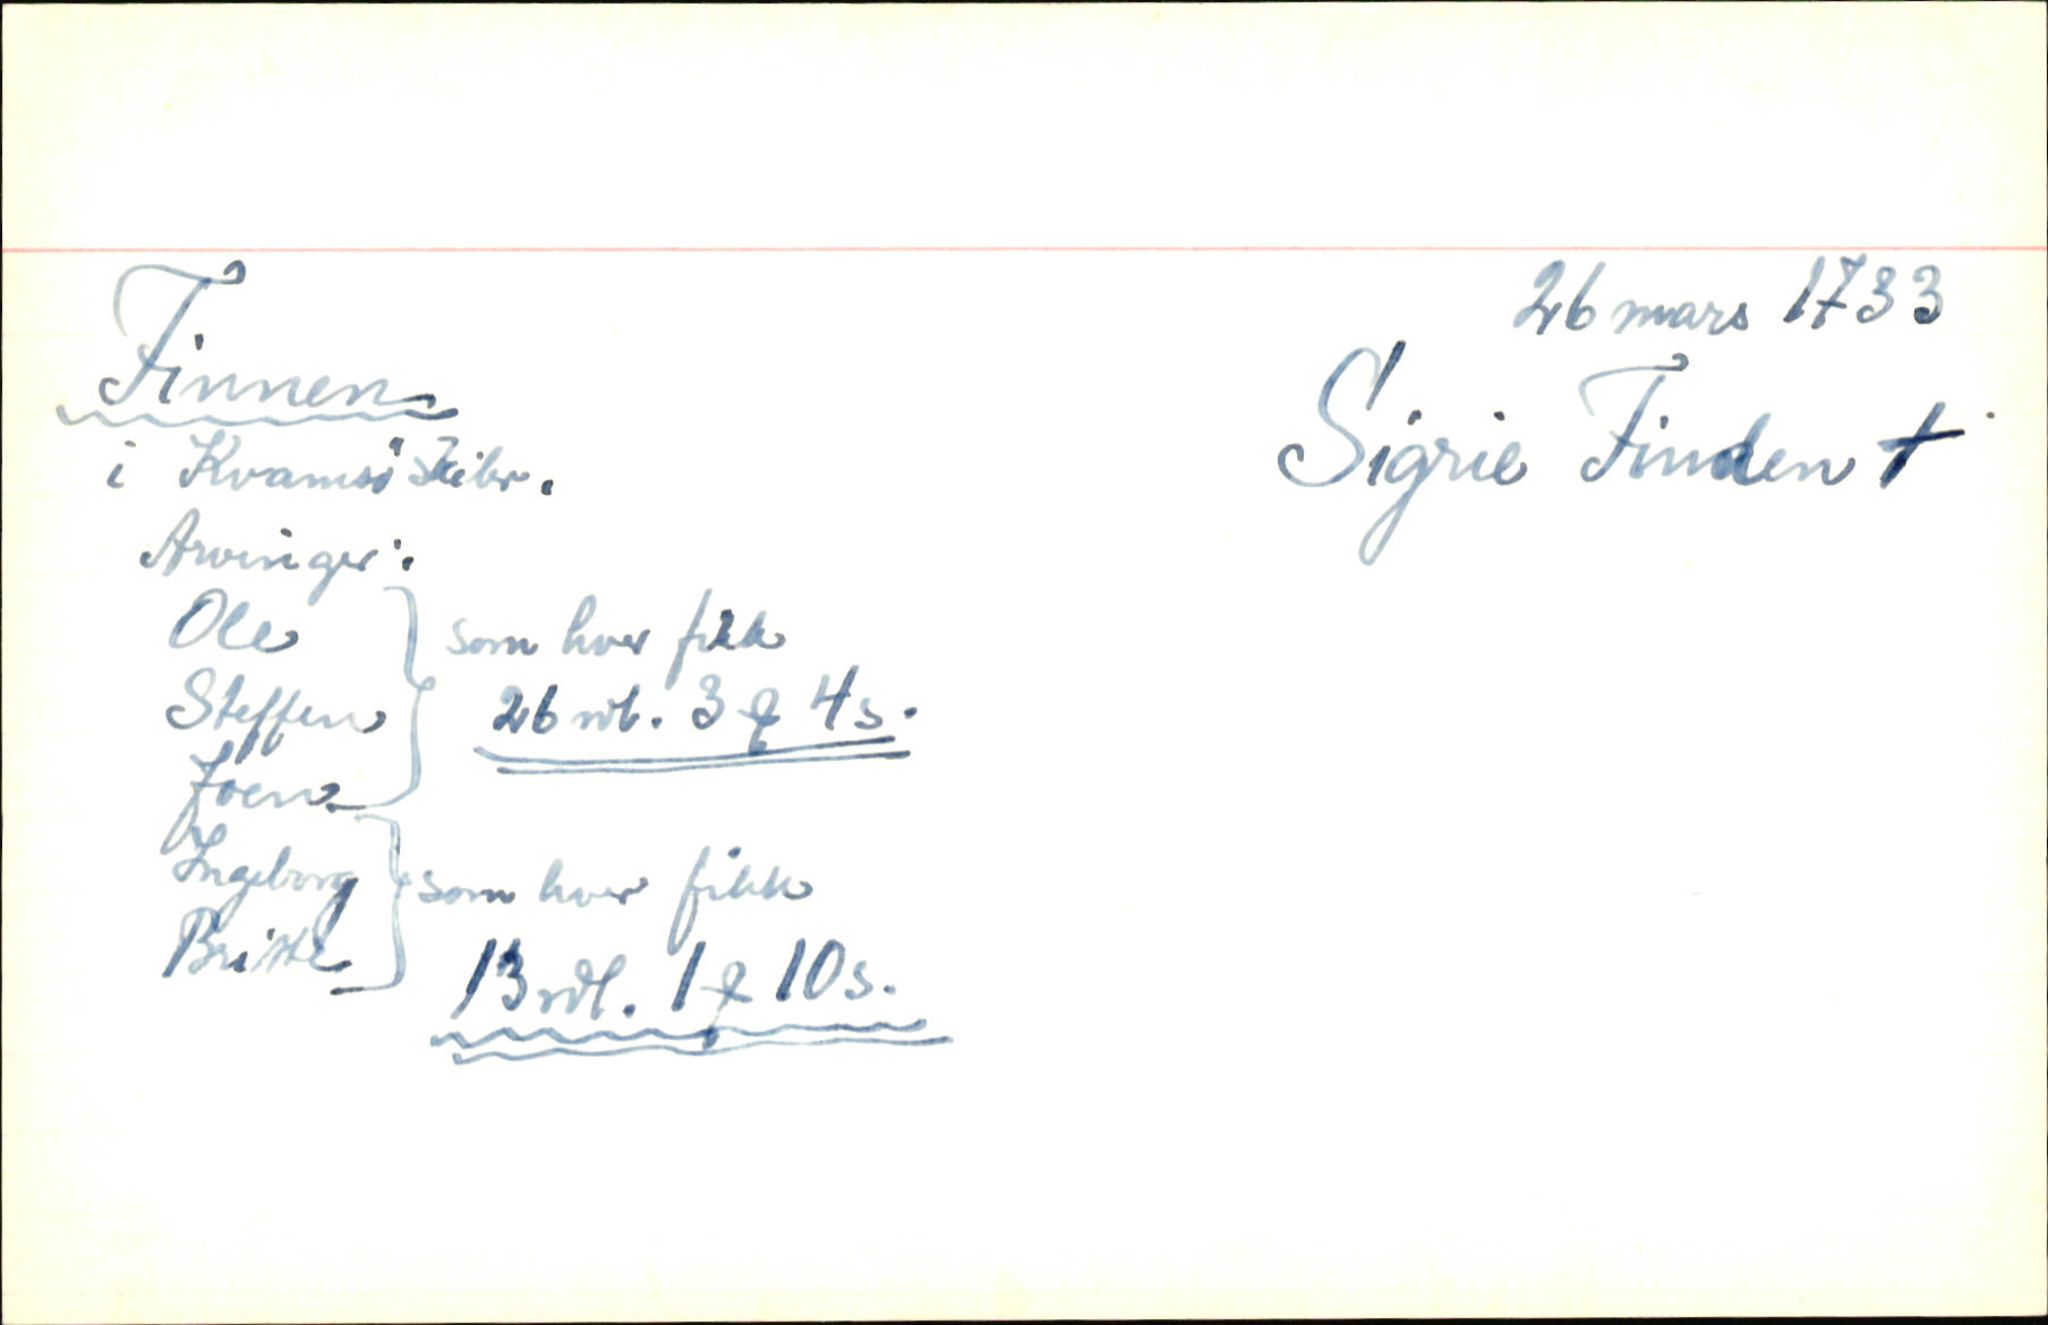 26 mars 1733
Finnen
Sigrie Finden †
i Kvamsö skibr.
Arvinger:
Ole
Steffen
Joen
som hver fikk
26 rdl. 3 ƍ 4 s.
Ingeborg
Britte
som hver fikk
13 rdl. 1 ƍ 10 s.